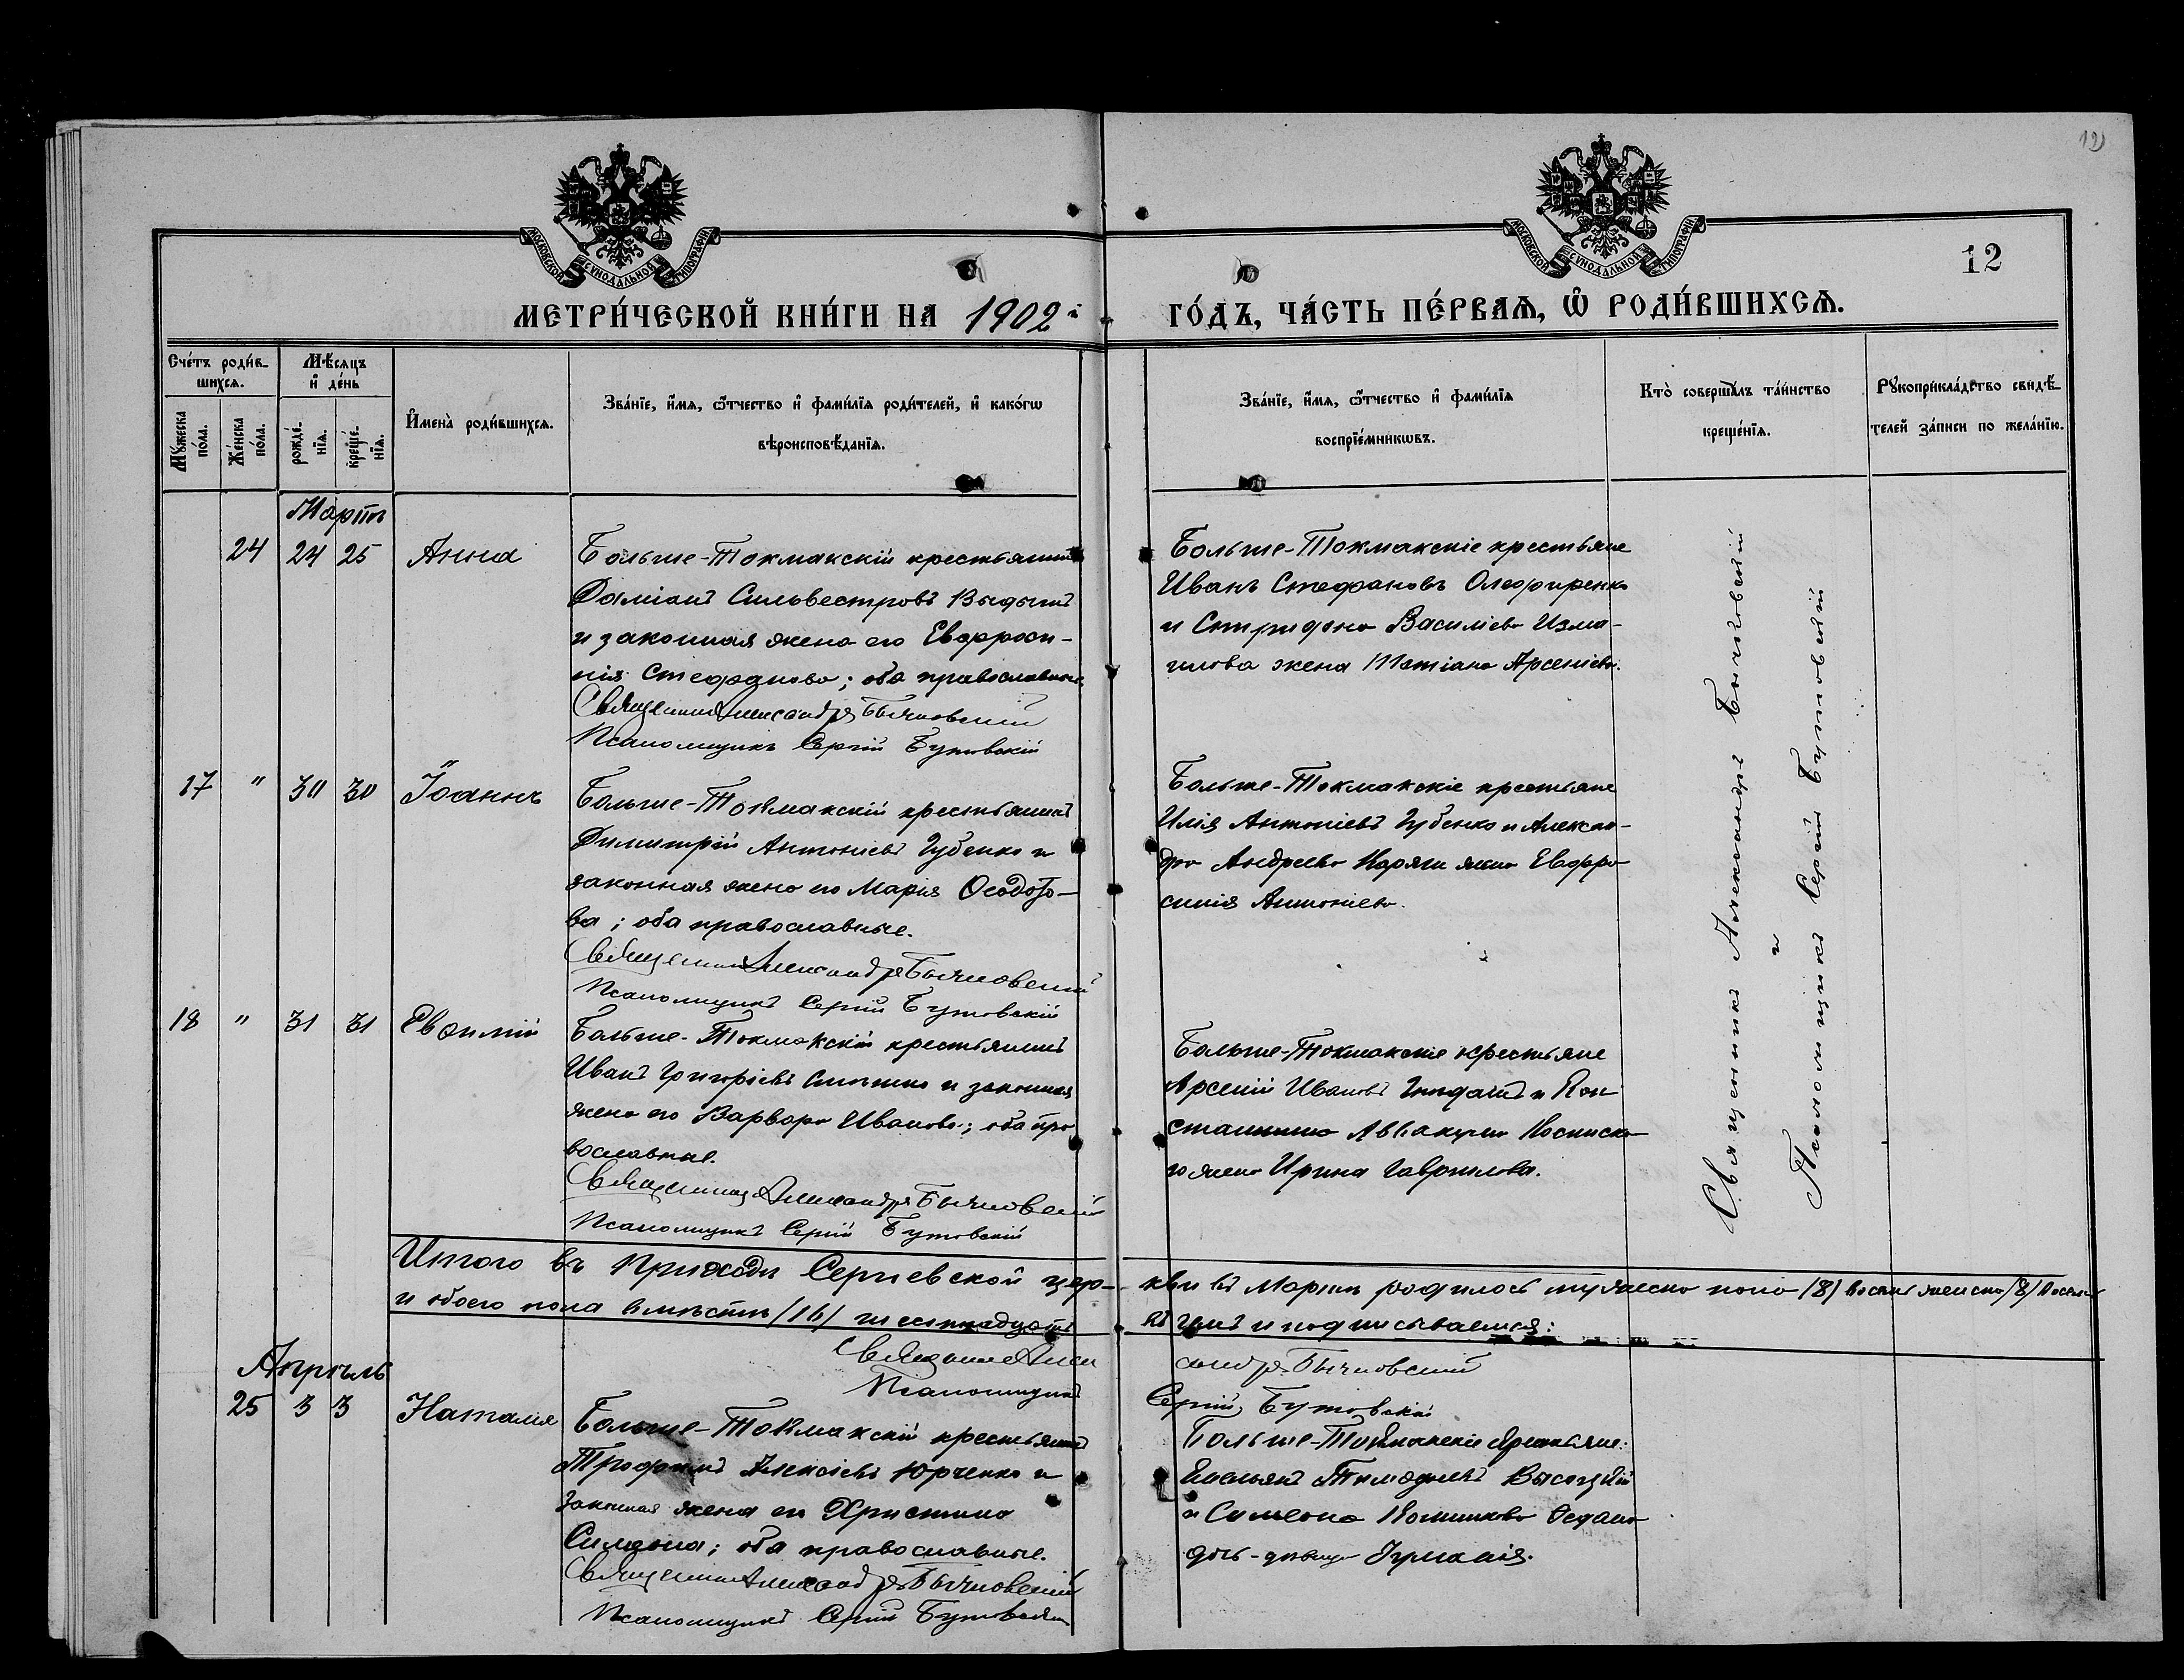 12
МОСКОВСКОЙ СѴНОДАЛЬНОЙ ТИПОГРАФІИ
МОСКОВСКОЙ СѴНОДАЛЬНОЙ ТИПОГРАФІИ
12
МЕТРИ́ЧЕСКОЙ КНИ́ГИ НА 1902й ГО́ДЪ, ЧА́СТЬ ПЕ́РВАѦ, Ѡ РОДИ́ВШИХСѦ.
Сче́тъ роди́в-
шихсѧ.
Мꙋжеска по́ла.
Же́нска по́ла.
Мѣ́сѧцъ
и҆ де́нь
рожде́-
нїѧ.
креще́-
нїѧ.
И҆мена̀ роди́вшихсѧ.
Зва́нїе, и҆́мѧ, ѻ҆́тчество и҆ фами́лїѧ роди́телей, и҆ како́гѡ
вѣроисповѣ́данїѧ.
Зва́нїе, и҆́мѧ, ѻ҆́тчество и҆ фами́лїѧ
воспрїе́мникѡвъ.
Кто̀ соверша́лъ та́инство
креще́нїѧ.
Рꙋкоприкла́дство свидѣ́-
телей за́писи по жела́нїю.
Мартъ
24 24 25 Анна
Больше-Токмакскій крестьянинъ
Даміанъ Сильвестровъ
и законная жена его Евфроси-
нія Стефанова; оба православные.
Священникъ Александръ Бычковскій
Псаломщикъ Сергій Бутовскій
Больше-Токмакскіе крестьяне
Иванъ Стефановъ Олефиренко
и Спиридона Василіева Изма-
илова жена Татіана Арсеніева.
17 " 30 30 Іоаннъ
Больше-Токмакскій крестьянинъ
Димитрій Антоніевъ Губенко и
законная жена его Марія Ѳеодото-
ва; оба православные.
Священникъ Александръ Бычковскій
Псаломщикъ Сергій Бутовскій
Больше-Токмакскіе крестьяне
Илія Антоніевъ Губенко и Алексан-
дра Андреева жена Евфро-
синія Антоніева.
18 " 31 31 Евѳимій
Больше-Токмакскій крестьянинъ
Иванъ Григоріевъ и законная
жена его Варвара Иванова; оба пра
вославные.
Священникъ Александръ Бычковскій
Псаломщикъ Сергій Бутовскій
Больше-Токмакскіе крестьяне
Арсеній Ивановъ и Кон
стантина Аввакумова
го жена Ирина Гаврилова.
Священникъ Александръ Бычковскій
и
Псаломщикъ Сергій Бутовскій
Итого въ Приходѣ Сергіевской цер- кви въ Мартѣ родилось мужеска пола /8/ восемь женска /8/ восемь
и обоего пола вмѣстѣ /16/ шестнадцать въ чемъ и подписываемся:
Священникъ Александръ Бычковскій
Псаломщикъ Сергій Бутовскій
Апрѣль
25 3 3 Наталія
Больше-Токмакскій крестьянинъ
Трофимъ Алексіевъ Юрченко и
законная жена его Христина
Симеонова; оба православные.
Священникъ Александръ Бычковскій
Псаломщикъ Сергій Бутовскій
Больше-Токмакскіе крестьяне:
Тимоѳеевъ Высоцкій
и Симеона
дочь-дѣвица